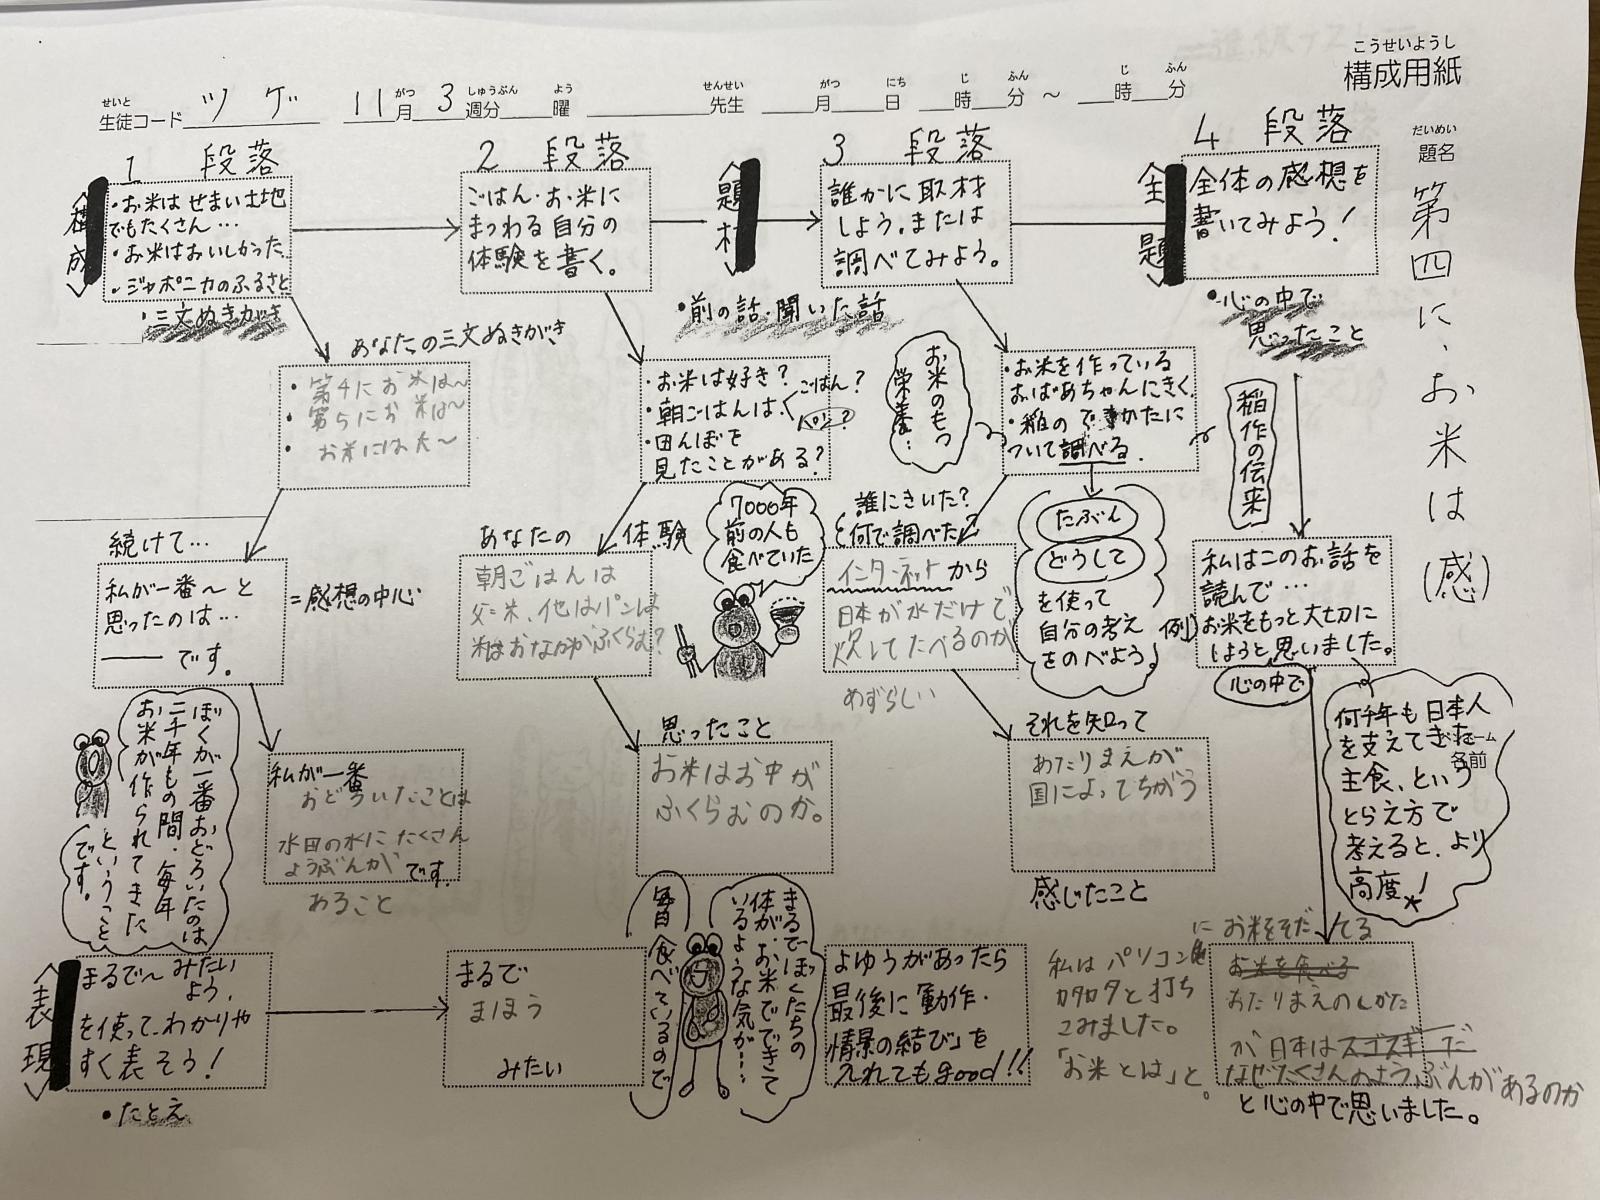 こうせいようし
構成用紙
せいと
生徒コード ツゲ
11月 3週分 曜
がつ しゅうぶん よう
せんせい
先生
がつ にち じ ふん じ ふん
月 日 時 分 ～ 時 分
だいめい
題名
第四に、お米は(感)
ペンネーム
名前
1 段落
構成
・お米はせまい土地
でもたくさん…
・お米はおいしかった
・ジャポニカのふるさと
・三文ぬきがき
あなたの三文ぬきがき
・第4にお米は～
・第5にお米は～
・お米には大～
続けて…
私が一番～と
思ったのは…
── です。
=感想の中心
ぼくが一番おどろいたのは
二千年もの間、毎年
お米が作られてきた
ということ
です。
私が一番
おどろいたことは
水田の水にたくさん
ようぶんが です。
あること
表現
まるで～みたい
よう、
を使って、わかりや
すく表そう!
・たとえ
2 段落
ごはん・お米に
まつわる自分の
体験を書く。
・お米は好き?
・朝ごはんは、
ごはん?
パン?
・田んぼを
見たことがある?
あなたの 体験
朝ごはんは
父=米、他はパンは
米はおなかがふくらむ?
7000年
前の人も
食べていた
思ったこと
お米はお中が
ふくらむのか。
まるで
まほう
みたい
毎日食べているので
まるでぼくたちの
体が、お米でできて
いるような気が…
題材
3 段落
誰かに取材
しよう。または
調べてみよう。
・前の話・聞いた話
お米のもつ
栄養…
・お米を作っている
おばあちゃんにきく
・稲のできかたに
ついて調べる。
誰にきいた?
何で調べた?
インターネットから
日本が水だけで
炊してたべるのが
めずらしい
たぶん
どうして
を使って
自分の考え
をのべよう。
それを知って
あたりまえが
国によってちがう
感じたこと
よゆうがあったら
最後に動作・
情景の結び」を
入れてもgood!!
私はパソコンに
カタカタと打ち
こみました。
「お米とは」と。
主題
4 段落
全体の感想を
書いてみよう!
・心の中で
思ったこと
稲作の伝来
例)
私はこのお話を
読んで…
お米をもっと大切に
しようと思いました。
心の中で
何千年も日本人
を支えてきた
主食、という
とらえ方で
考えると、より
高度!
お米をそだてる
お米を食べる
あたりまえのしかた
が日本はスゴスギだ
なぜたくさんのようぶんがあるのか
と心の中で思いました。